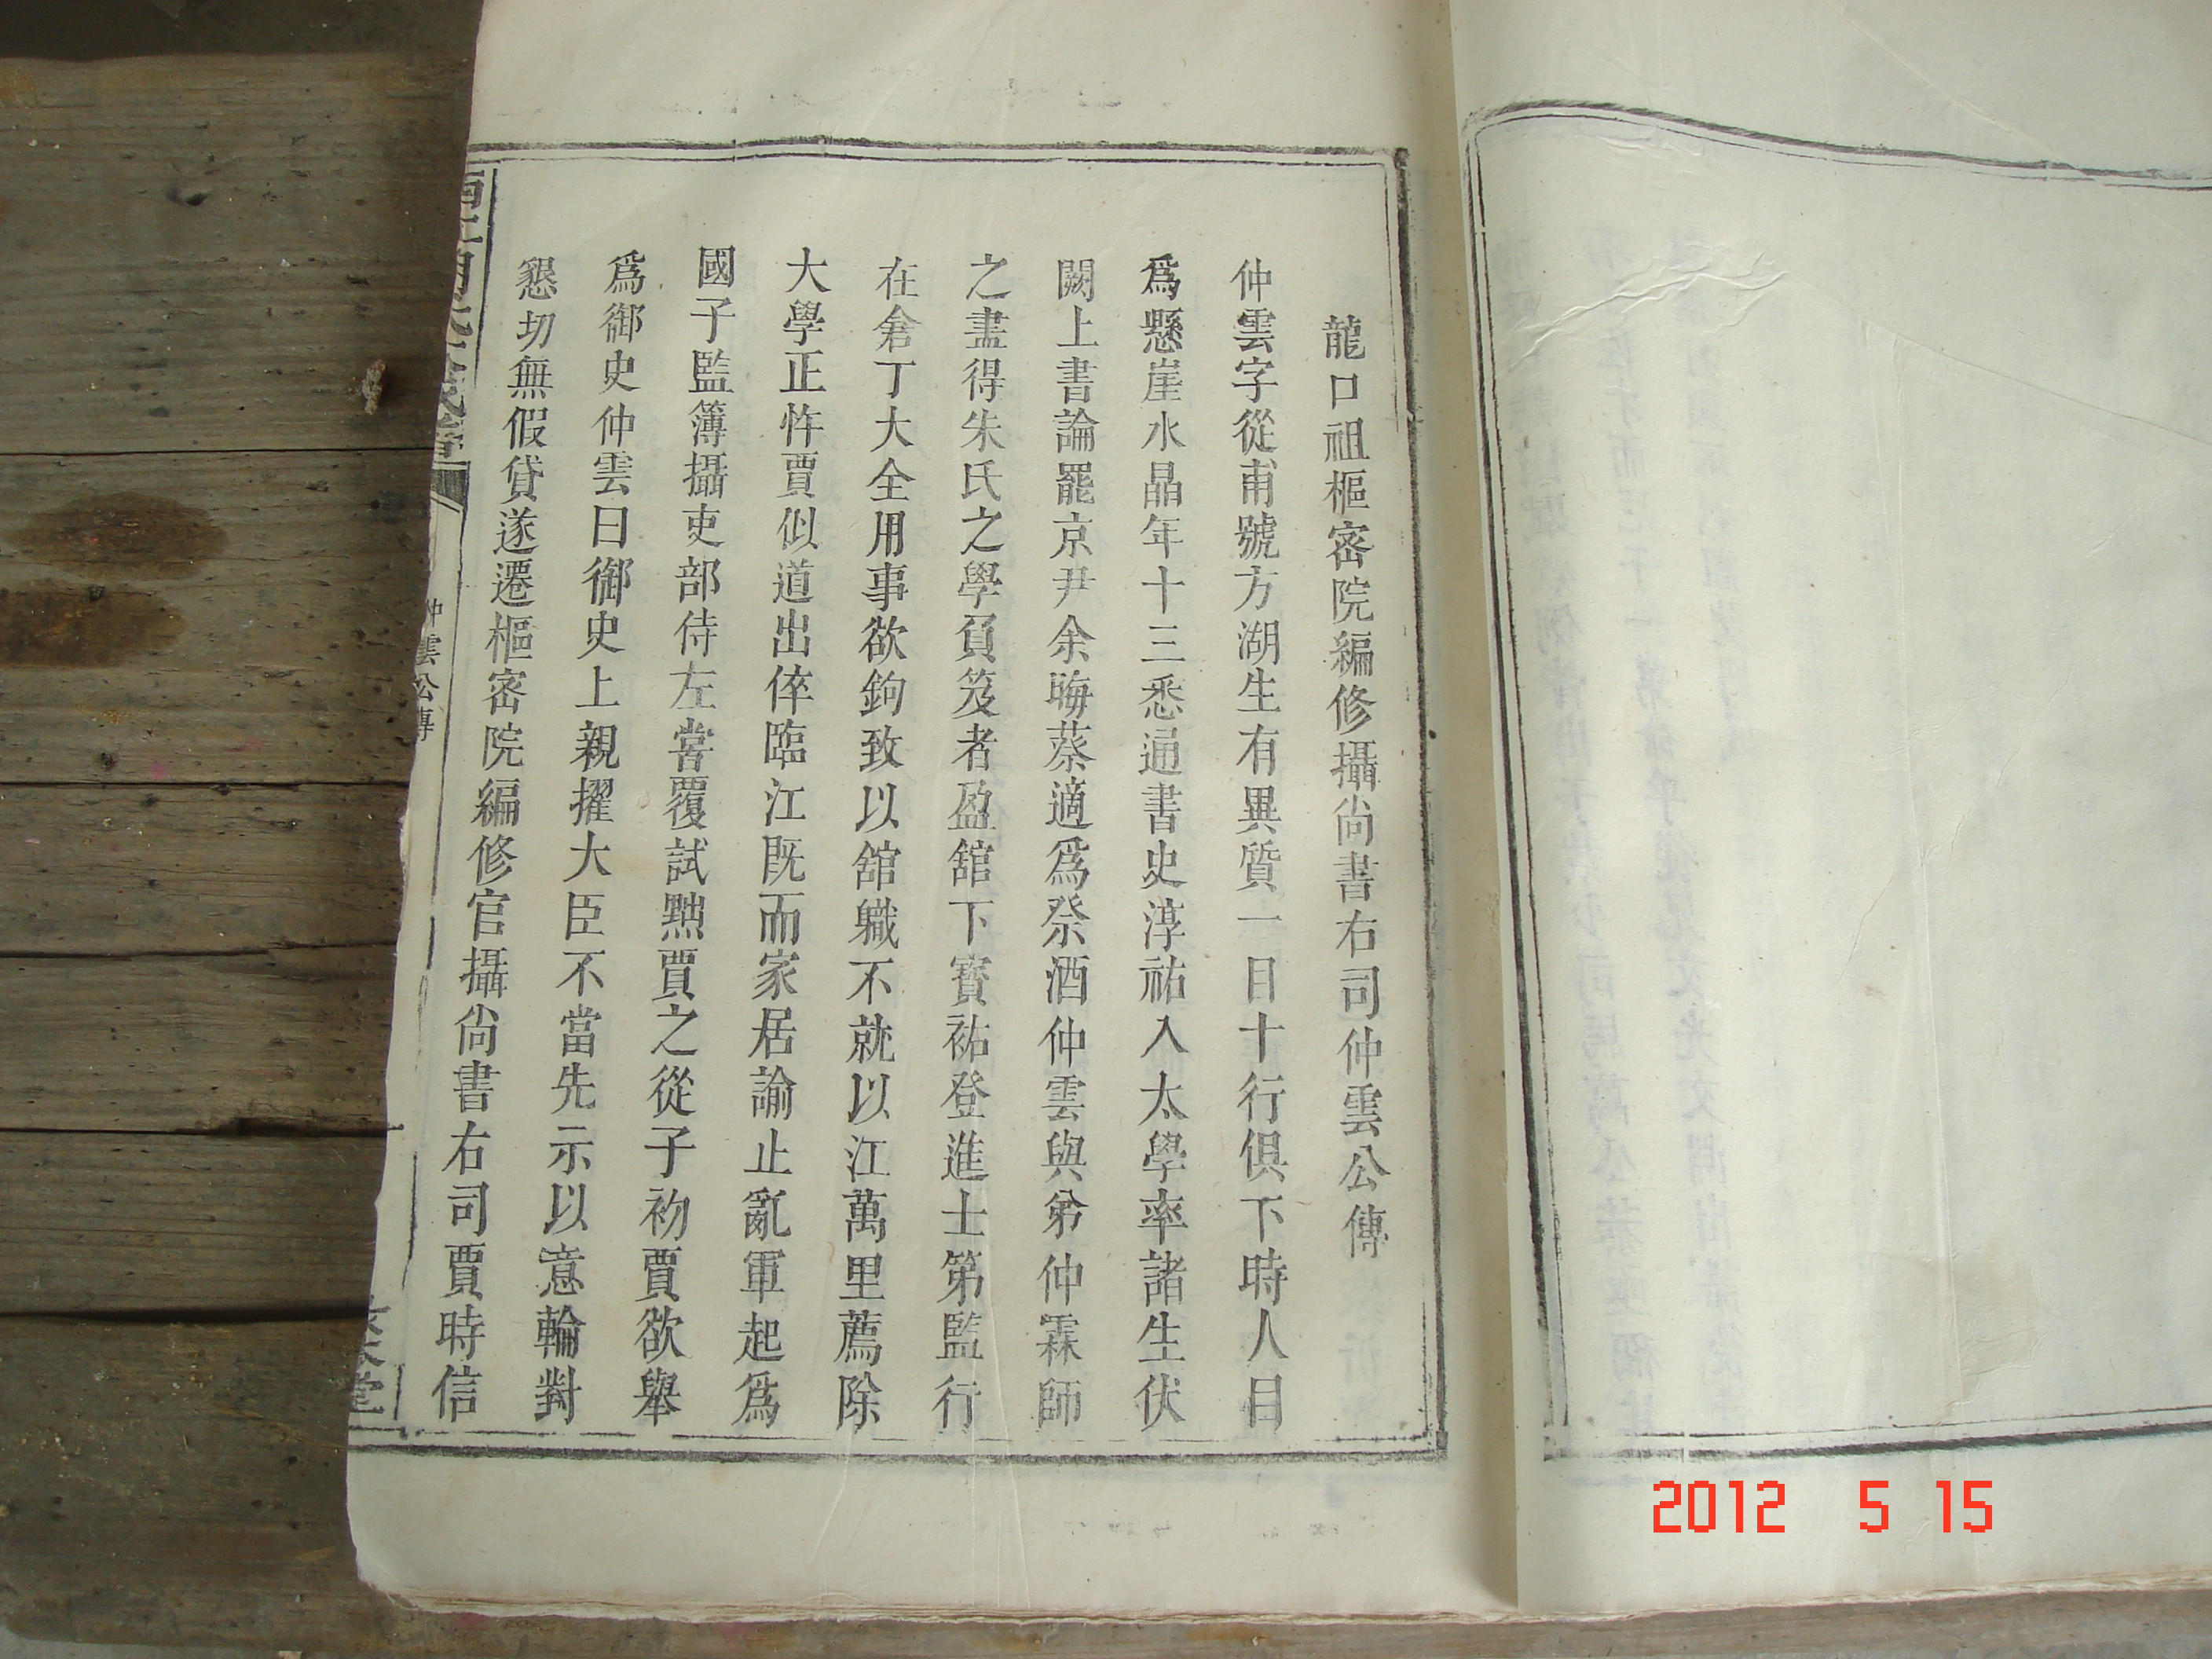 龍口祖樞密院編修攝尙書右司仲雲公傳
仲雲字從甫號方湖生有異質一日十行俱下時人目
爲懸崖水晶年十三悉通書史淳祐入太學率諸生伏
闕上書論罷京尹余晦蔡適爲祭酒仲雲與弟仲霖師
之盡得朱氏之學負笈者盈舘下寳祐登進士第監行
在倉丁大全用事欲鉤致以舘職不就以江萬里薦除
大學正忤賈似道出倅臨江既而家居諭止亂軍起爲
國子監簿攝吏部侍左嘗覆試黜賈之從子初賈欲舉
爲御史仲雲曰御史上親擢大臣不當先示以意輪對
懇切無假貸遂遷樞密院編修官攝尙書右司賈時信
仲雲公傳
堂
2012 5 15